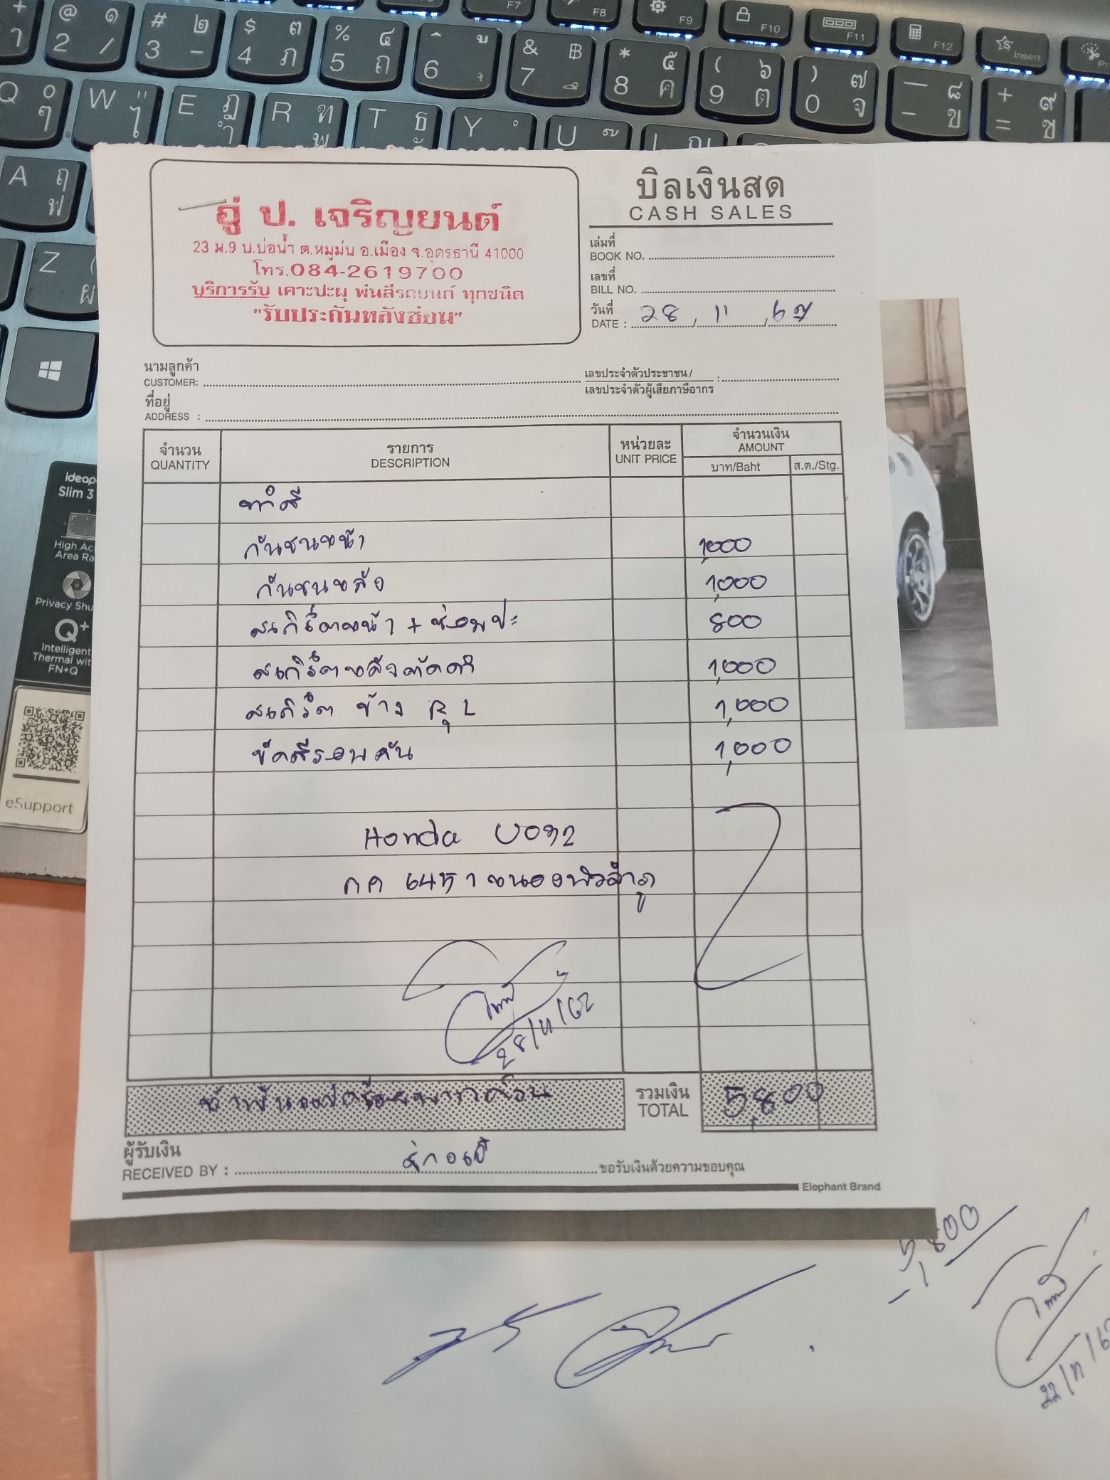 อู่ ป. เจริญยนต์
23 ม.9 บ.บ่อน้ำ ต.หมูม่น อ.เมือง จ.อุดรธานี 41000
โทร.084-2619700
บริการรับ เคาะปะผุ พ่นสีรถยนต์ ทุกชนิด
"รับประกันหลังซ่อม"
บิลเงินสด
CASH SALES
เล่มที่
BOOK NO.
เลขที่
BILL NO.
วันที่
DATE : 28, 11, 67
นามลูกค้า
CUSTOMER:
เลขประจำตัวประชาชน/
เลขประจำตัวผู้เสียภาษีอากร :
ที่อยู่
ADDRESS :
จำนวน รายการ หน่วยละ จำนวนเงิน
QUANTITY DESCRIPTION UNIT PRICE AMOUNT
บาท/Baht ส.ต./Stg.
ทำสี
กันชนหน้า 1,000
กันชนหลัง 1,000
สเกิร์ตหน้า + ซ่อมปะ 800
สเกิร์ตหลัง 1,000
สเกิร์ต ข้าง R, L 1,000
ขัดสีรอบคัน 1,000
Honda
หนองบัวลำภู
28/11/67
ห้าพันแปดร้อยบาทถ้วน
รวมเงิน 5,800
TOTAL
ผู้รับเงิน
RECEIVED BY : ขอรับเงินด้วยความขอบคุณ
Elephant Brand
5,800
F7 F8 F9 F10 F11 F12 Insert
ideap
Slim 3
High Ac
Area Ra
Privacy Shu
Q+
Intelligent
Thermal wit
FN+Q
eSupport